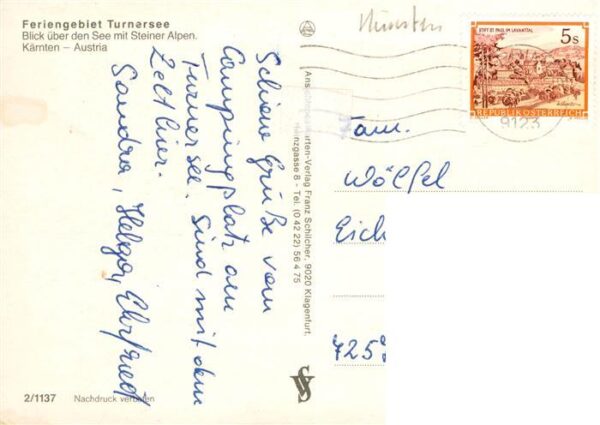 Feriengebiet Turnersee
Blick über den See mit Steiner Alpen.
Kärnten – Austria
Schöne Grüße vom
Campingplatz am
Turnersee. Sind mit dem
Zelt hier.
Sandra, Helga, Ehrfried
2/1137 Nachdruck verboten
Ans rten-Verlag Franz Schilcher, 9020 Klagenfurt,
nzgasse 8 - Tel. (0 42 22) 56 4 75
STIFT ST. PAUL IM LAVANTTAL
5 s
REPUBLIK ÖSTERREICH
9123
Fam.
Wölfel
Eich
725